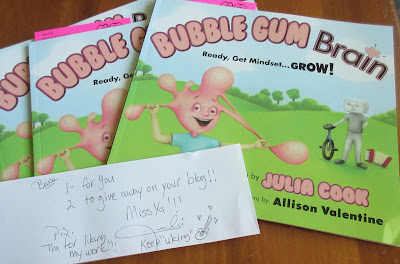 BUBBLE GUM Brain
Ready, Get Mindset...GROW!
BUBBLE GUM
Ready, Get
BUBB
JULIA COOK
by Allison Valentine
1- for you
2 to give away on your blog!!
Miss Ya!!!
Thx for liking
my work!!!
Keep "uking"